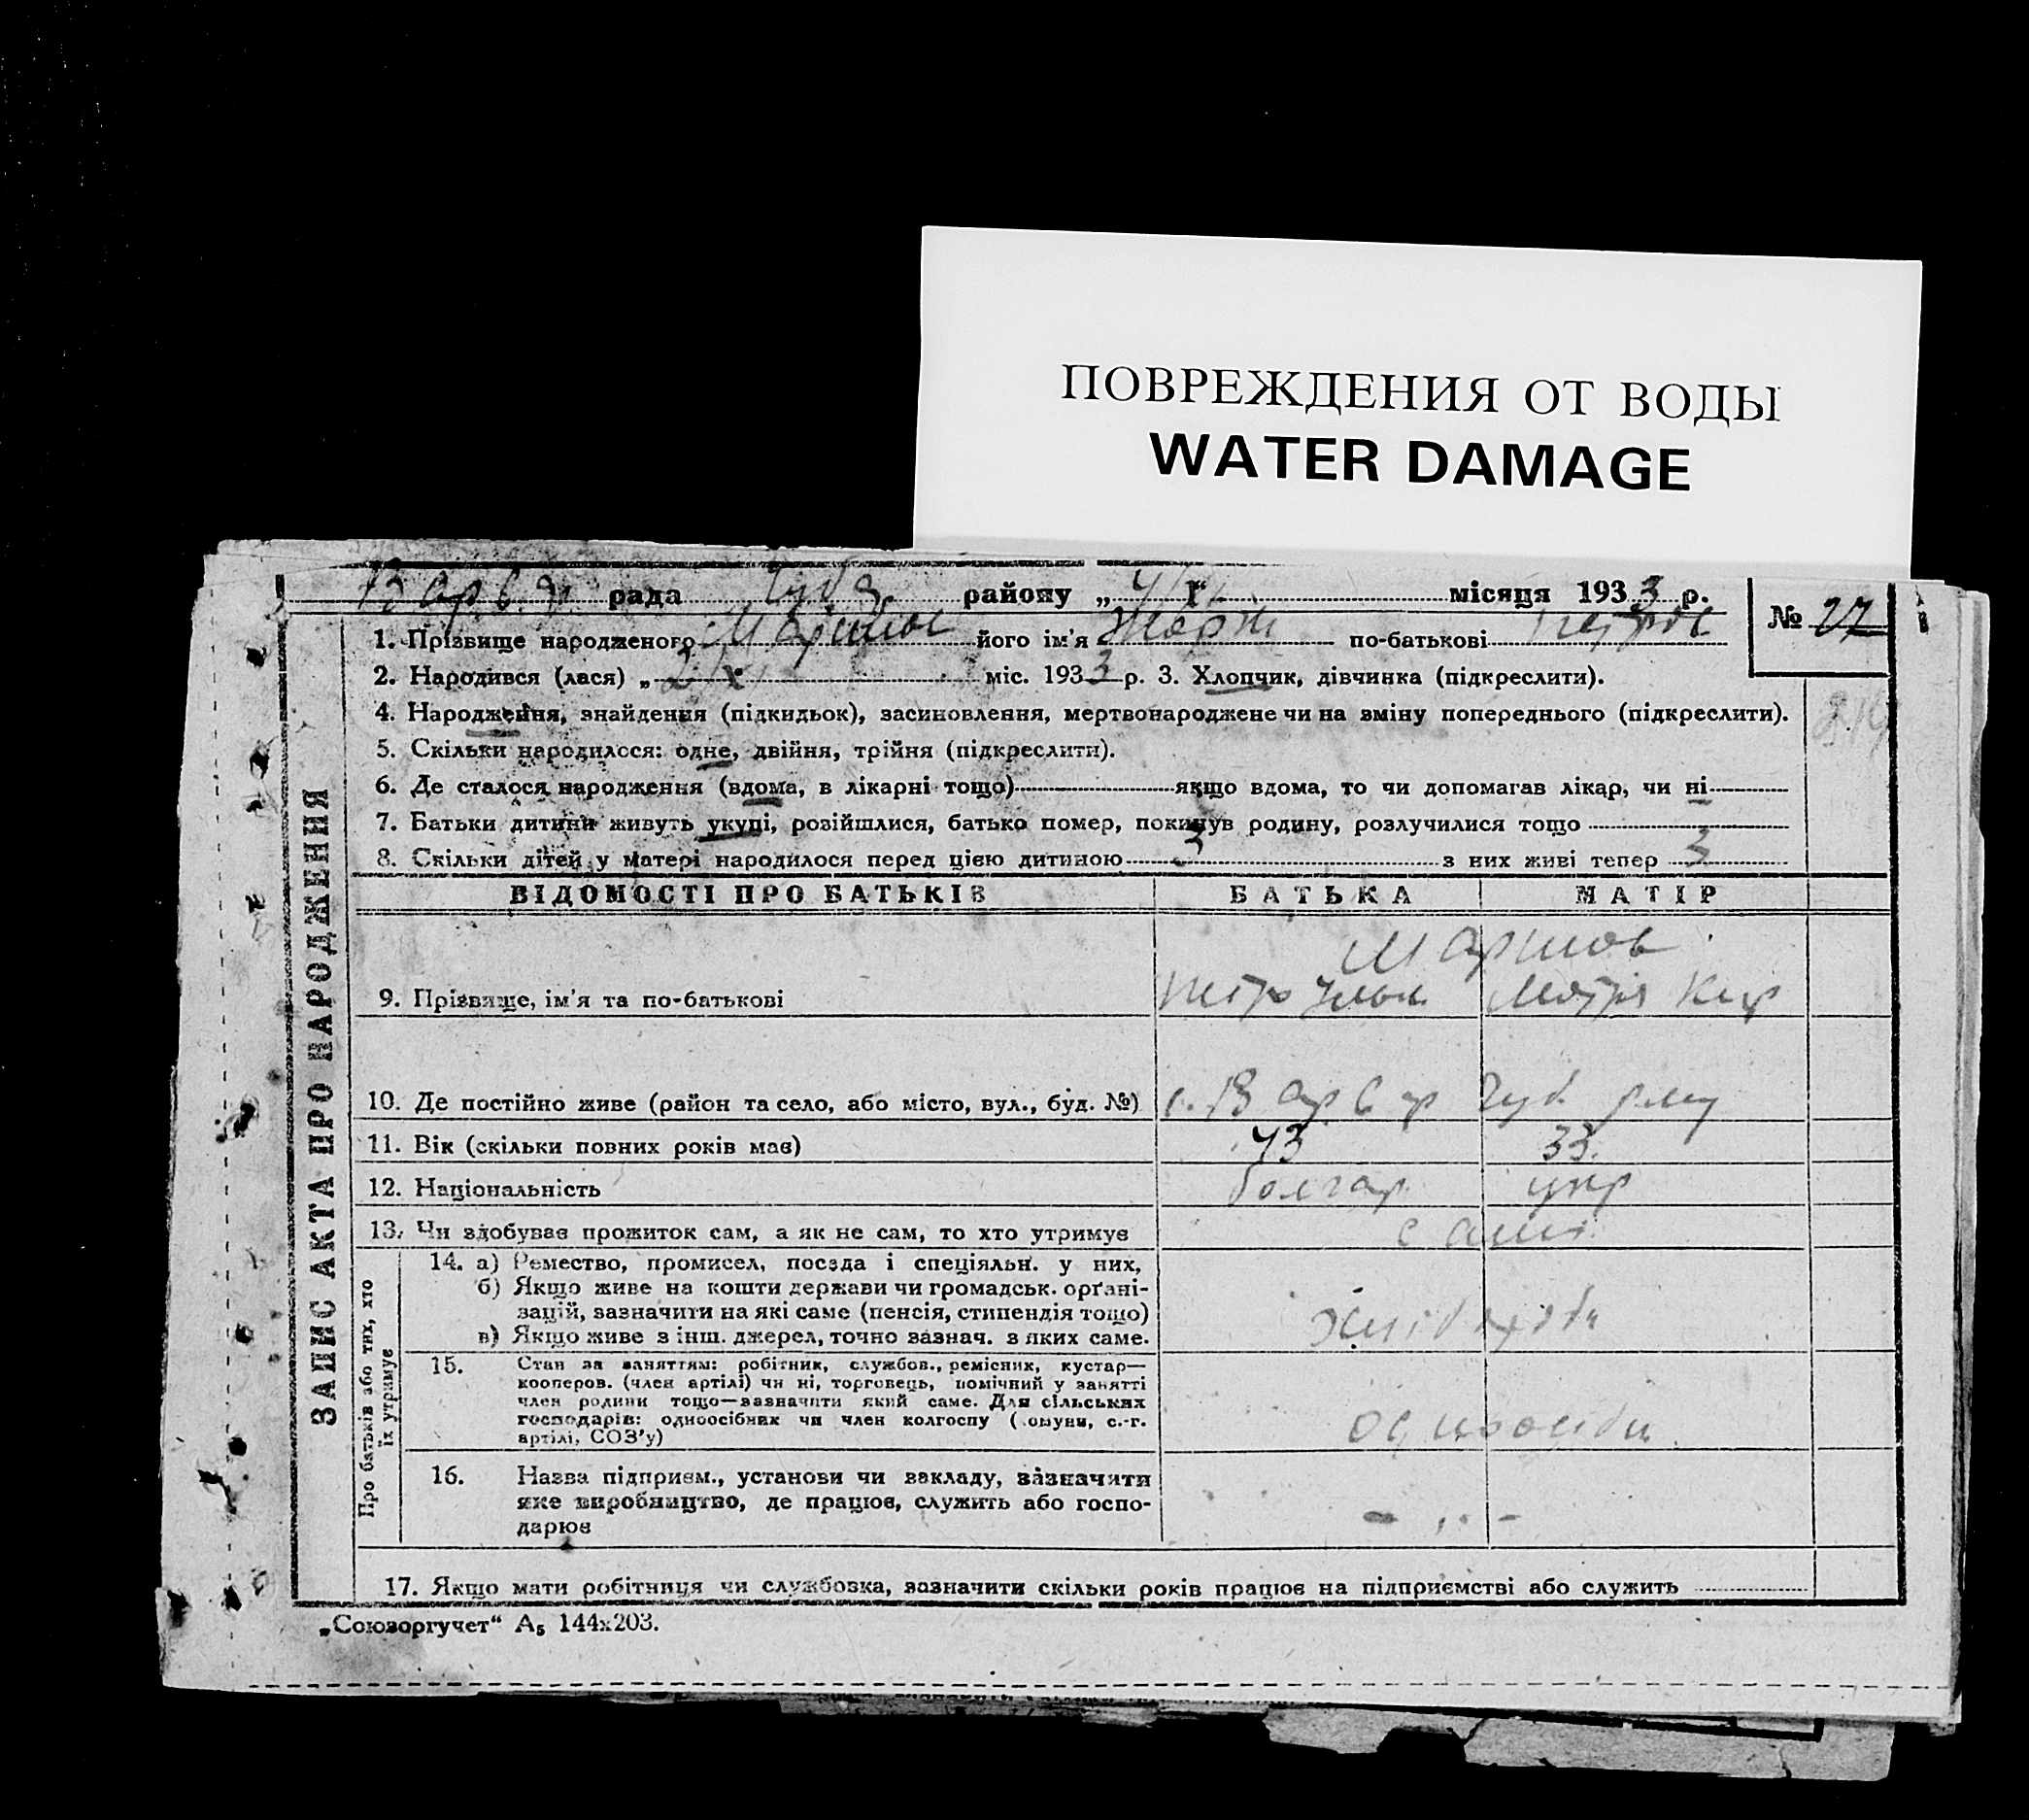 ПОВРЕЖДЕНИЯ ОТ ВОДЫ
WATER DAMAGE
Варв. рада району „4/Х“ місяця 1933 р.
№ 27
1. Прізвище народженого його ім'я по-батькові Петров
2. Народився (лася) „2 Х“ міс. 1933 р. 3. Хлопчик, дівчинка (підкреслити).
4. Народження, знайдення (підкидьок), засиновлення, мертвонароджене чи на зміну попереднього (підкреслити).
5. Скільки народилося: одне, двійня, трійня (підкреслити).
6. Де сталося народження (вдома, в лікарні тощо) якщо вдома, то чи допомагав лікар, чи ні
7. Батьки дитини живуть укупі, розійшлися, батько помер, покинув родину, розлучилися тощо
8. Скільки дітей у матері народилося перед цією дитиною 3 з них живі тепер 3
ЗАПИС АКТА ПРО НАРОДЖЕННЯ
ВІДОМОСТІ ПРО БАТЬКІВ БАТЬКА МАТІР
9. Прізвище, ім'я та по-батькові Петро Мотря Кир
10. Де постійно живе (район та село, або місто, вул., буд. №) с. Варвар Чуб. р-ну
11. Вік (скільки повних років має) 43 33.
12. Національність болгар. укр
13. Чи здобуває прожиток сам, а як не сам, то хто утримує самі
Про батьків або тих, хто їх утримує
14. а) Ремество, промисел, посада і спеціяльн. у них,
б) Якщо живе на кошти держави чи громадськ. орґані-
зацій, зазначити на які саме (пенсія, стипендія тощо)
в) Якщо живе з інш. джерел, точно зазнач. з яких саме.
хлібороби
15. Стан за заняттям: робітник, службов., ремісник, кустар—
кооперов. (член артілі) чи ні, торговець, помічний у занятті
член родини тощо—зазначити який саме. Для сільських
господарів: одноосібник чи член колгоспу (комуни, с.-г.
артілі, СОЗ'у)
одноосібн.
16. Назва підприєм., установи чи закладу, зазначити
яке виробництво, де працює, служить або госпо-
дарює
17. Якщо мати робітниця чи службовка, зазначити скільки років працює на підприємстві або служить
„Союзоргучет“ А₅ 144х203.